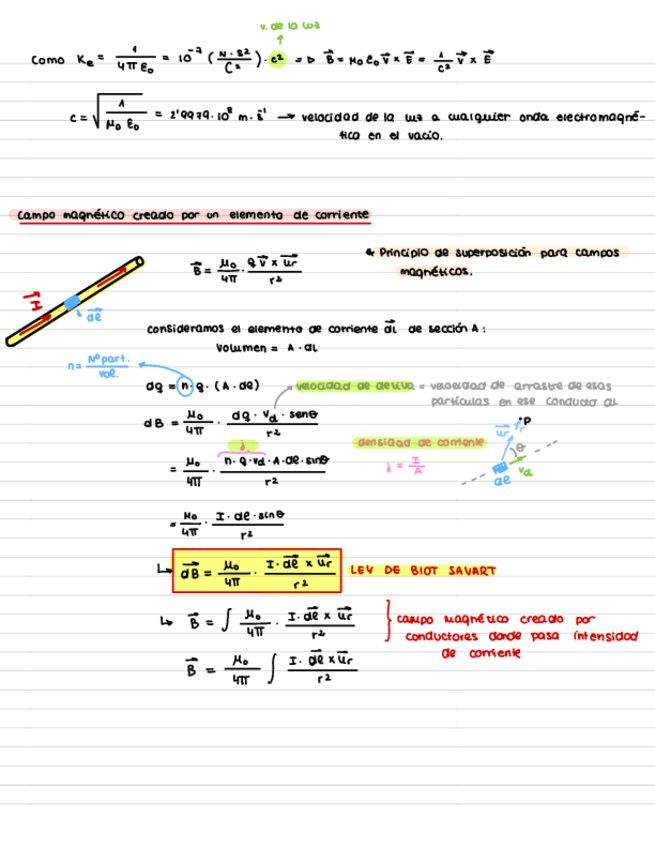 v. de la luz
Como Ke = 1/(4πε₀) = 10⁻⁷ (N·s²/C²)·c² => B⃗ = μ₀ε₀ v⃗ × E⃗ = 1/c² v⃗ × E⃗
c = √(1/(μ₀ε₀)) = 2'9979·10⁸ m·s⁻¹ → velocidad de la luz o cualquier onda electromagné-
tica en el vacio.
Campo magnético creado por un elemento de corriente
B⃗ = μ₀/4π · q v⃗ × u⃗r / r²
* Principio de superposición para campos
magnéticos.
I⃗
dl⃗
consideramos el elemento de corriente dL⃗ de sección A:
Volumen = A · dL
n = Nº part. / vol.
dq = n · q · (A · dl)
velocidad de deriva = velocidad de arrastre de esas
partículas en ese conducto dL
dB = μ₀/4π · dq · vd · senθ / r²
j
= μ₀/4π · n · q · vd · A · dl · sinθ / r²
densidad de corriente
j = I/A
P
u⃗r
r
θ
vd
dl
= μ₀/4π · I · dl · sinθ / r²
↳ dB⃗ = μ₀/4π · I · dl⃗ × u⃗r / r² LEY DE BIOT SAVART
↳ B⃗ = ∫ μ₀/4π · I · dl⃗ × u⃗r / r²
} campo magnético creado por
conductores donde pasa intensidad
de corriente
B⃗ = μ₀/4π ∫ I · dl⃗ × u⃗r / r²